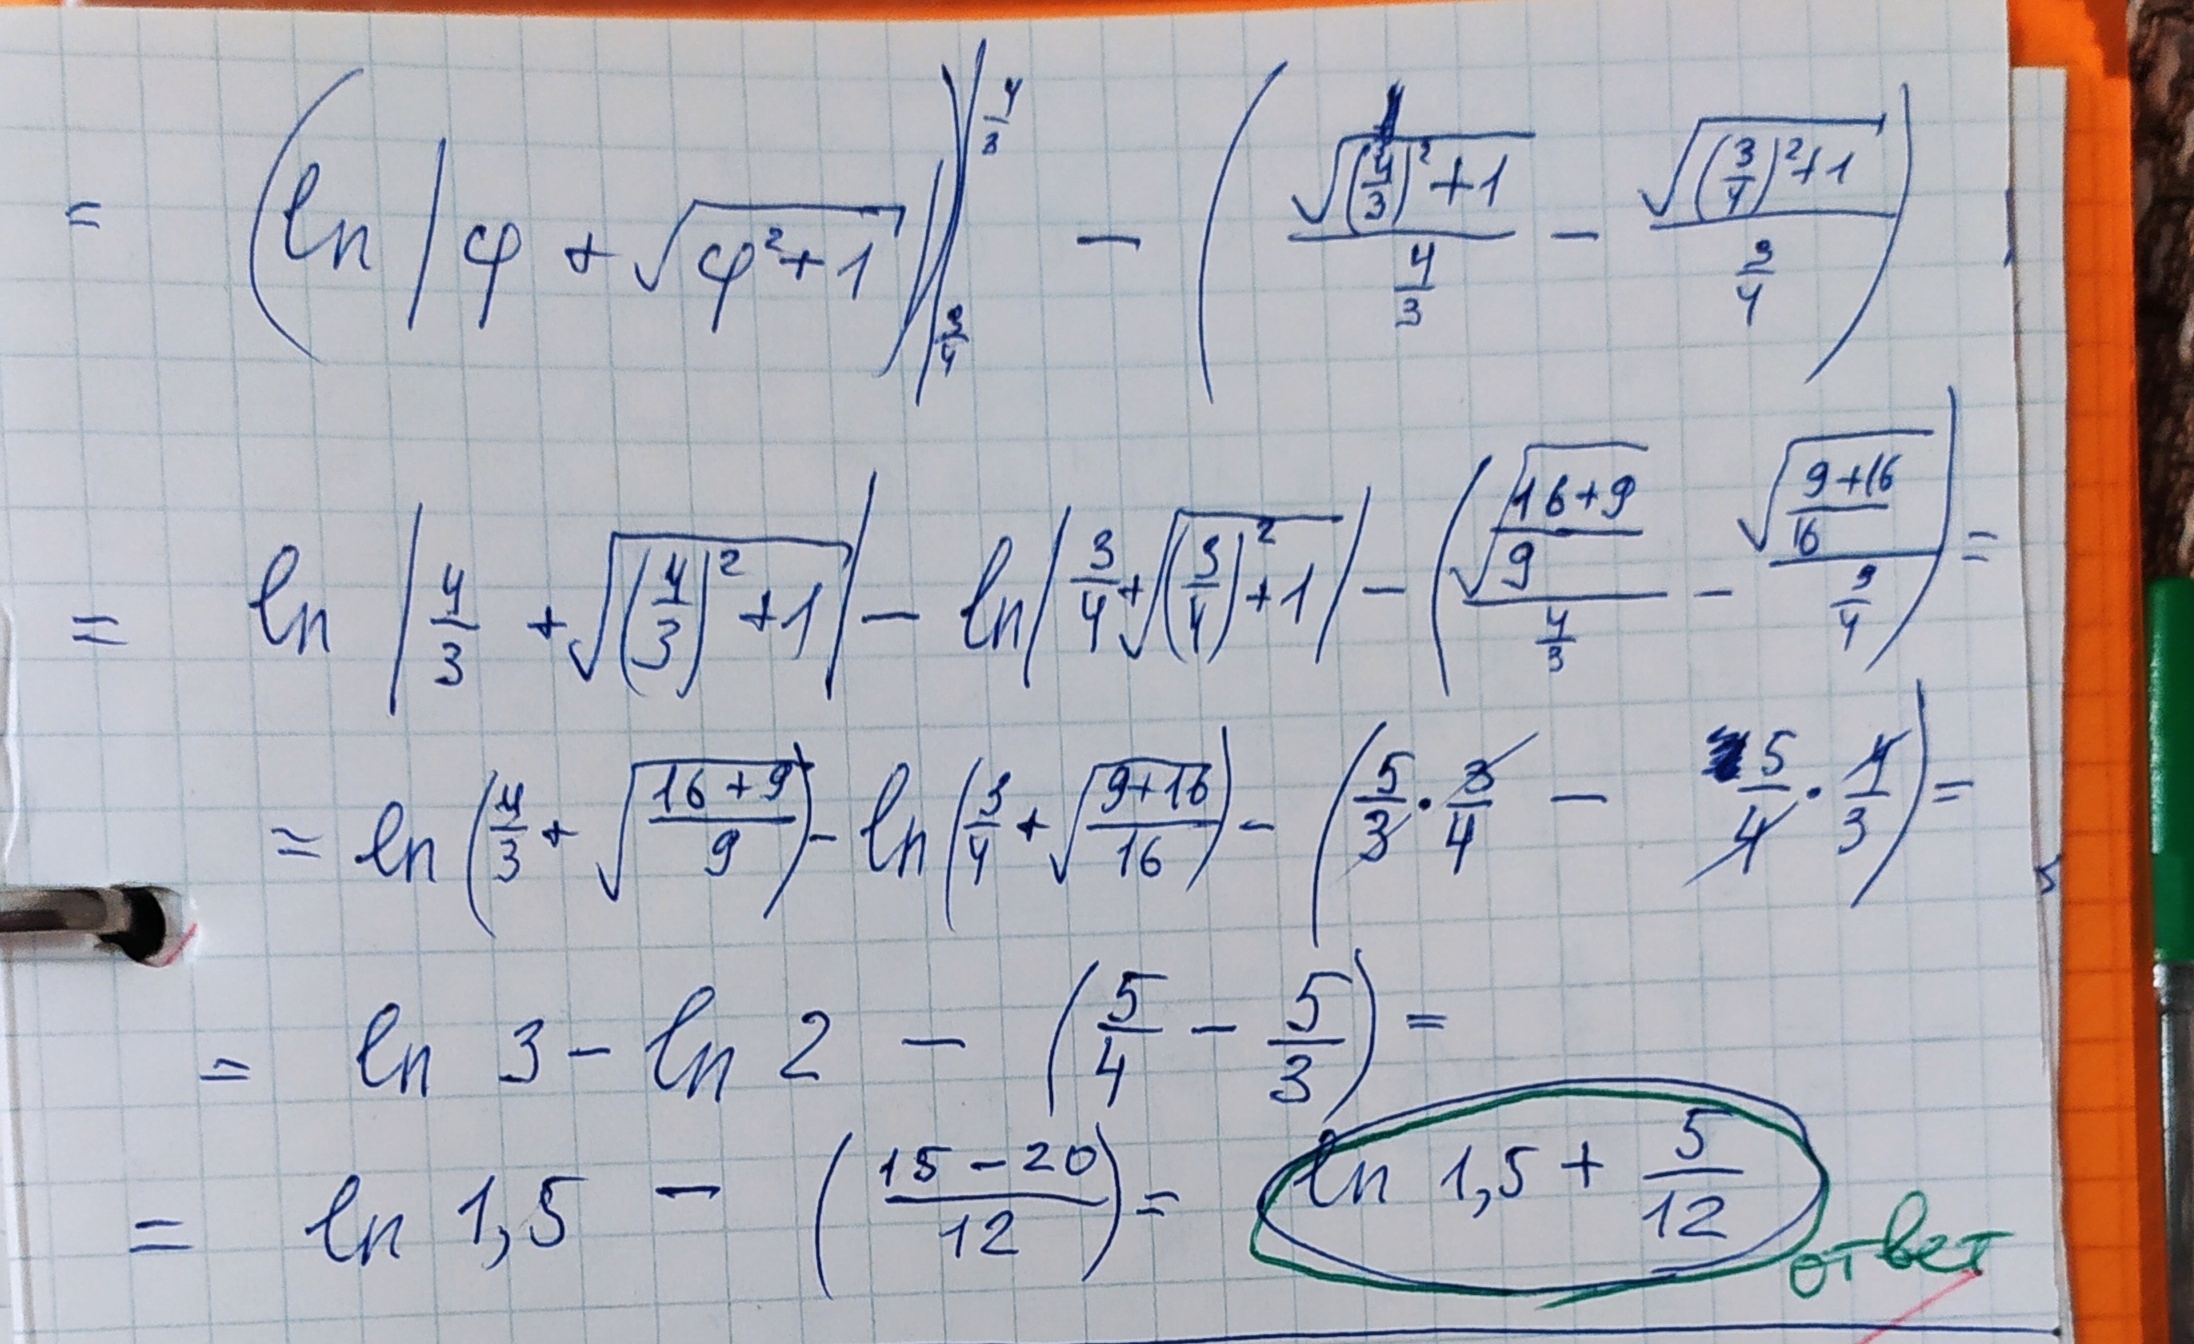 = (ln |φ + √(φ² + 1)|)|_{3/4}^{4/3} − (√((4/3)² + 1) / (4/3) − √((3/4)² + 1) / (3/4))
= ln |4/3 + √((4/3)² + 1)| − ln |3/4 + √((3/4)² + 1)| − (√((16+9)/9) / (4/3) − √((9+16)/16) / (3/4)) =
= ln (4/3 + √((16+9)/9)) − ln (3/4 + √((9+16)/16)) − (5/3 · 3/4 − 5/4 · 4/3) =
= ln 3 − ln 2 − (5/4 − 5/3) =
= ln 1,5 − ((15 − 20)/12) = ln 1,5 + 5/12
ответ